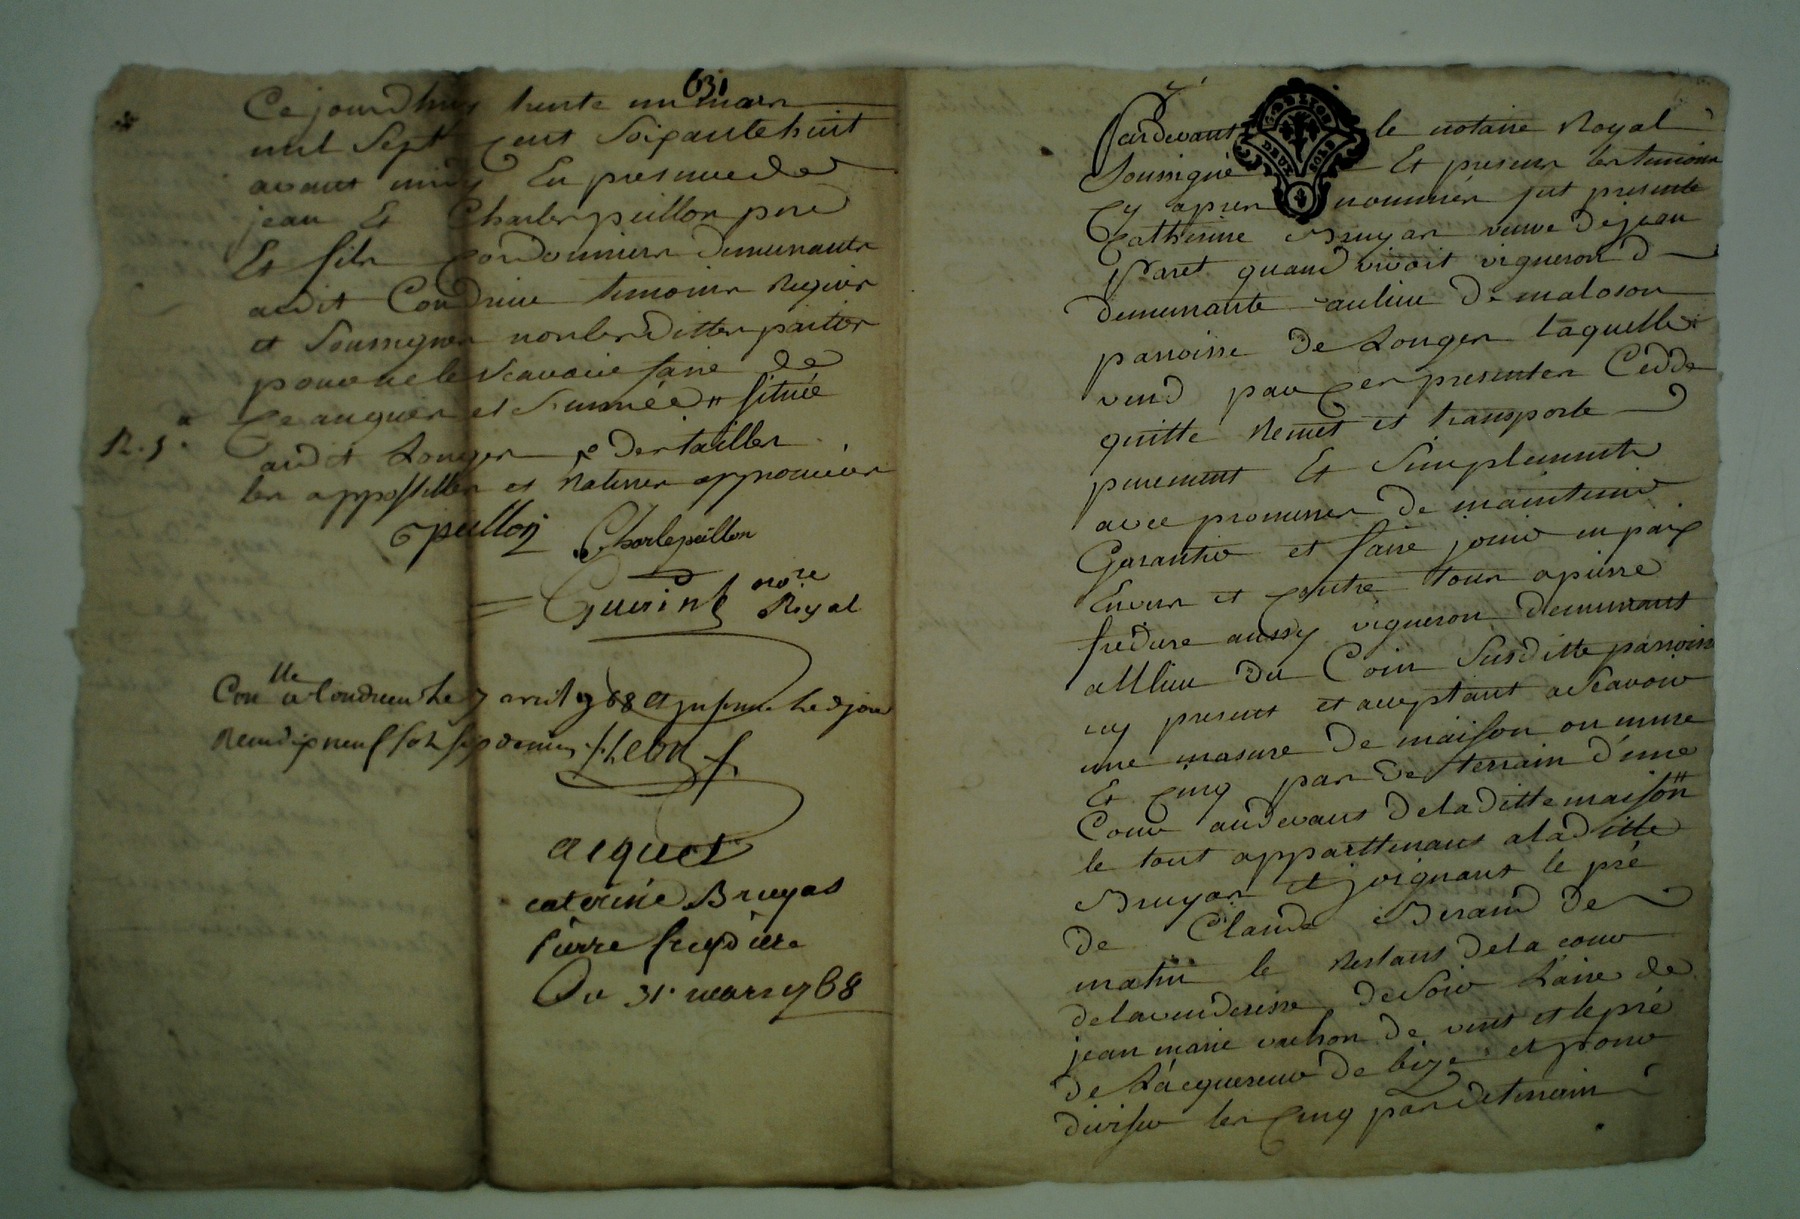 631
Ce jourdhuy trente un mars
mil Sept cent Soixante huit
avant midy En presence de
jean Et Charles peillon pere
Et fils cordonniers demeurants
audit Condrieu temoins Requis
et Soussignés non les dittes parties
pour ne le Scavoir faire de
ce enquis et Sommée # Située
R. 5.s
audit Longes & des tailles
les appostilles et Ratures approuvées
peillon Charle peillon
Guerin no.re Royal
Con.lle a Condrieu Le 7 avril 1768
Reçu dix neuf sols six deniers
acquet
caterine Bruyas
Pierre freydiere
Du 31. mars 1768
GENERAL
DEUX SOLS
Pardevant le notaire Royal
Soussigné Et presens les temoins
cy apres nommés fut presente
Catherine Bruyas veuve de jean
Paret quand vivoit vigneron
demeurante au lieu de maloson
parroisse de Longes laquelle
vend par ces presentes Cedde
quitte Remet et transporte
purement Et Simplement
avec promesse de maintenir
Garantir et faire jouir en paix
Envers et contre tous a pierre
fredure aussy vigneron demeurant
au lieu du Coin Susditte parroisse
cy present et acceptant a Scavoir
une masure de maison ou mure
Et cinq pas de terrain d'une
Cour audevant de la ditte maison #
le tout appartenant a la ditte
Bruyas et joignant le pré
de Claude Beraud de
matin le Restant de la cour
de la venderesse de Soir L'aire de
jean marie vachon de vent et le pré
de L'acquereur de bize et pour
diviser les cinq pas de terrain